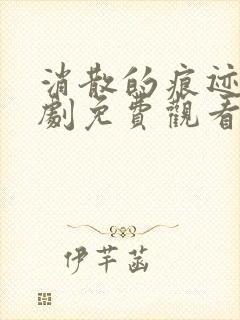 消散的痕迹
劇免費觀看
伊芊菡